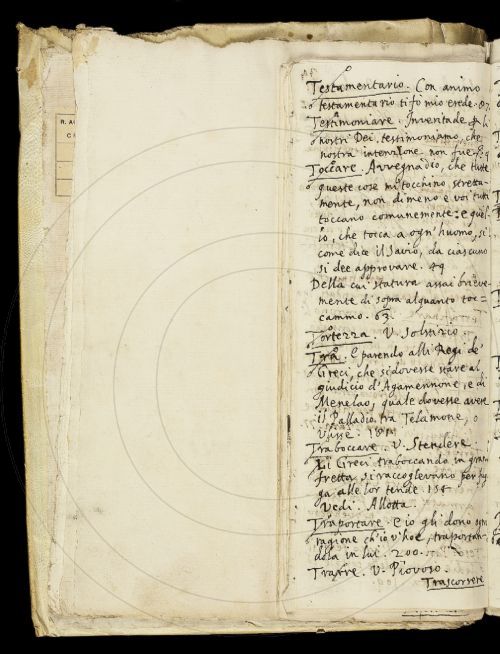 R. AC
Testamentario. Con animo
testamentario ti fo mio erede. 87
Testimoniare. Inventade
nostri Dei, testimoniamo, che
nostra intenzione non fue
Toccare. Avvegnadio, che tutte
queste cose mi tocchino, stretta-
mente, non dimeno e voi tutti
toccano comunemente: e quel-
lo, che tocca a ogn'huomo, si
come dice il Savio, da ciascuno
si dee approvare. 49
Della cui statura assai brieve-
mente di sopra alquanto toc=
cammo. 63.
Tortezza. V. Solstizio.
Tra. E parendo alli Regi de'
Greci, che si dovesse stare al
giudicio d'Agamennone, e di
Menelao, quale dovesse avere
il Palladio, tra Telamone, o
Ulisse.
Traboccare. V. Stendere.
Li Greci traboccando in gran
fretta si raccoglevano per fu
ga alle lor tende. 151
Vedi. Allotta.
Traportare. E io gli dono
ragione ch'io v'hoe, traportan-
dola in lui. 200.
Trarre. V. Piovoso.
Trascorrere